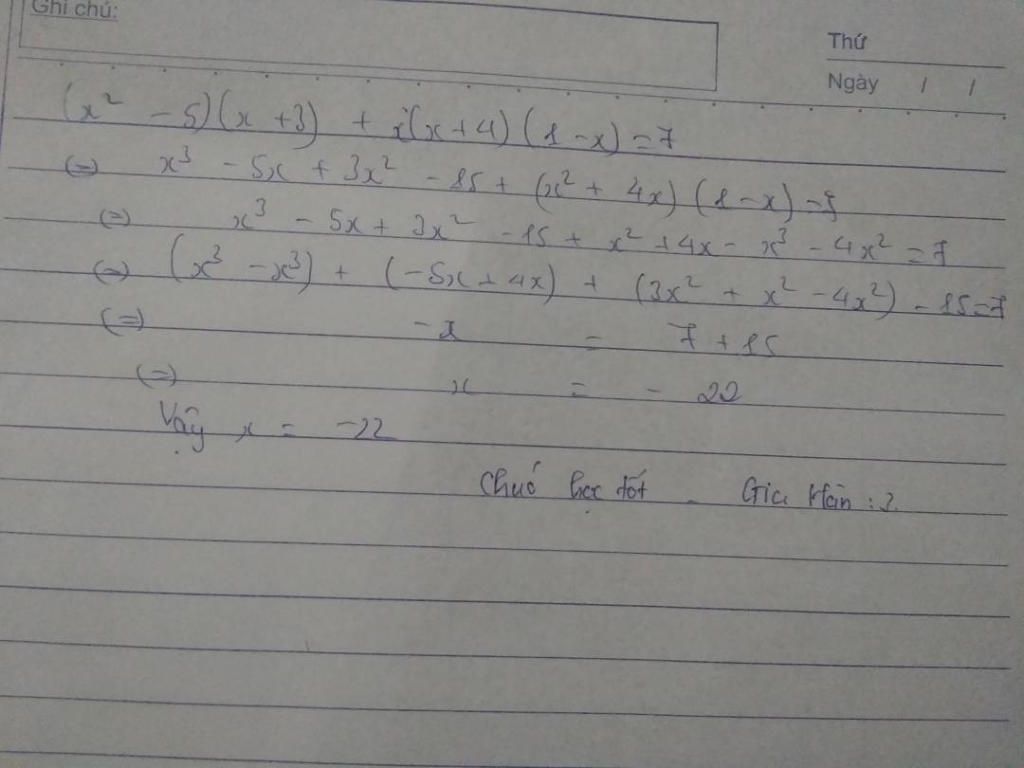 Ghi chú:
Thứ
Ngày / /
(x² - 5)(x + 3) + x(x+4)(1-x) = 7
(=) x³ - 5x + 3x² - 15 + (x² + 4x)(1-x) = 7
(=) x³ - 5x + 3x² - 15 + x² + 4x - x³ - 4x² = 7
(=) (x³ - x³) + (-5x + 4x) + (3x² + x² - 4x²) - 15 = 7
(=) -x = 7 + 15
(=) x = - 22
Vậy x = -22
Chuć học tốt - Gia Hân :3